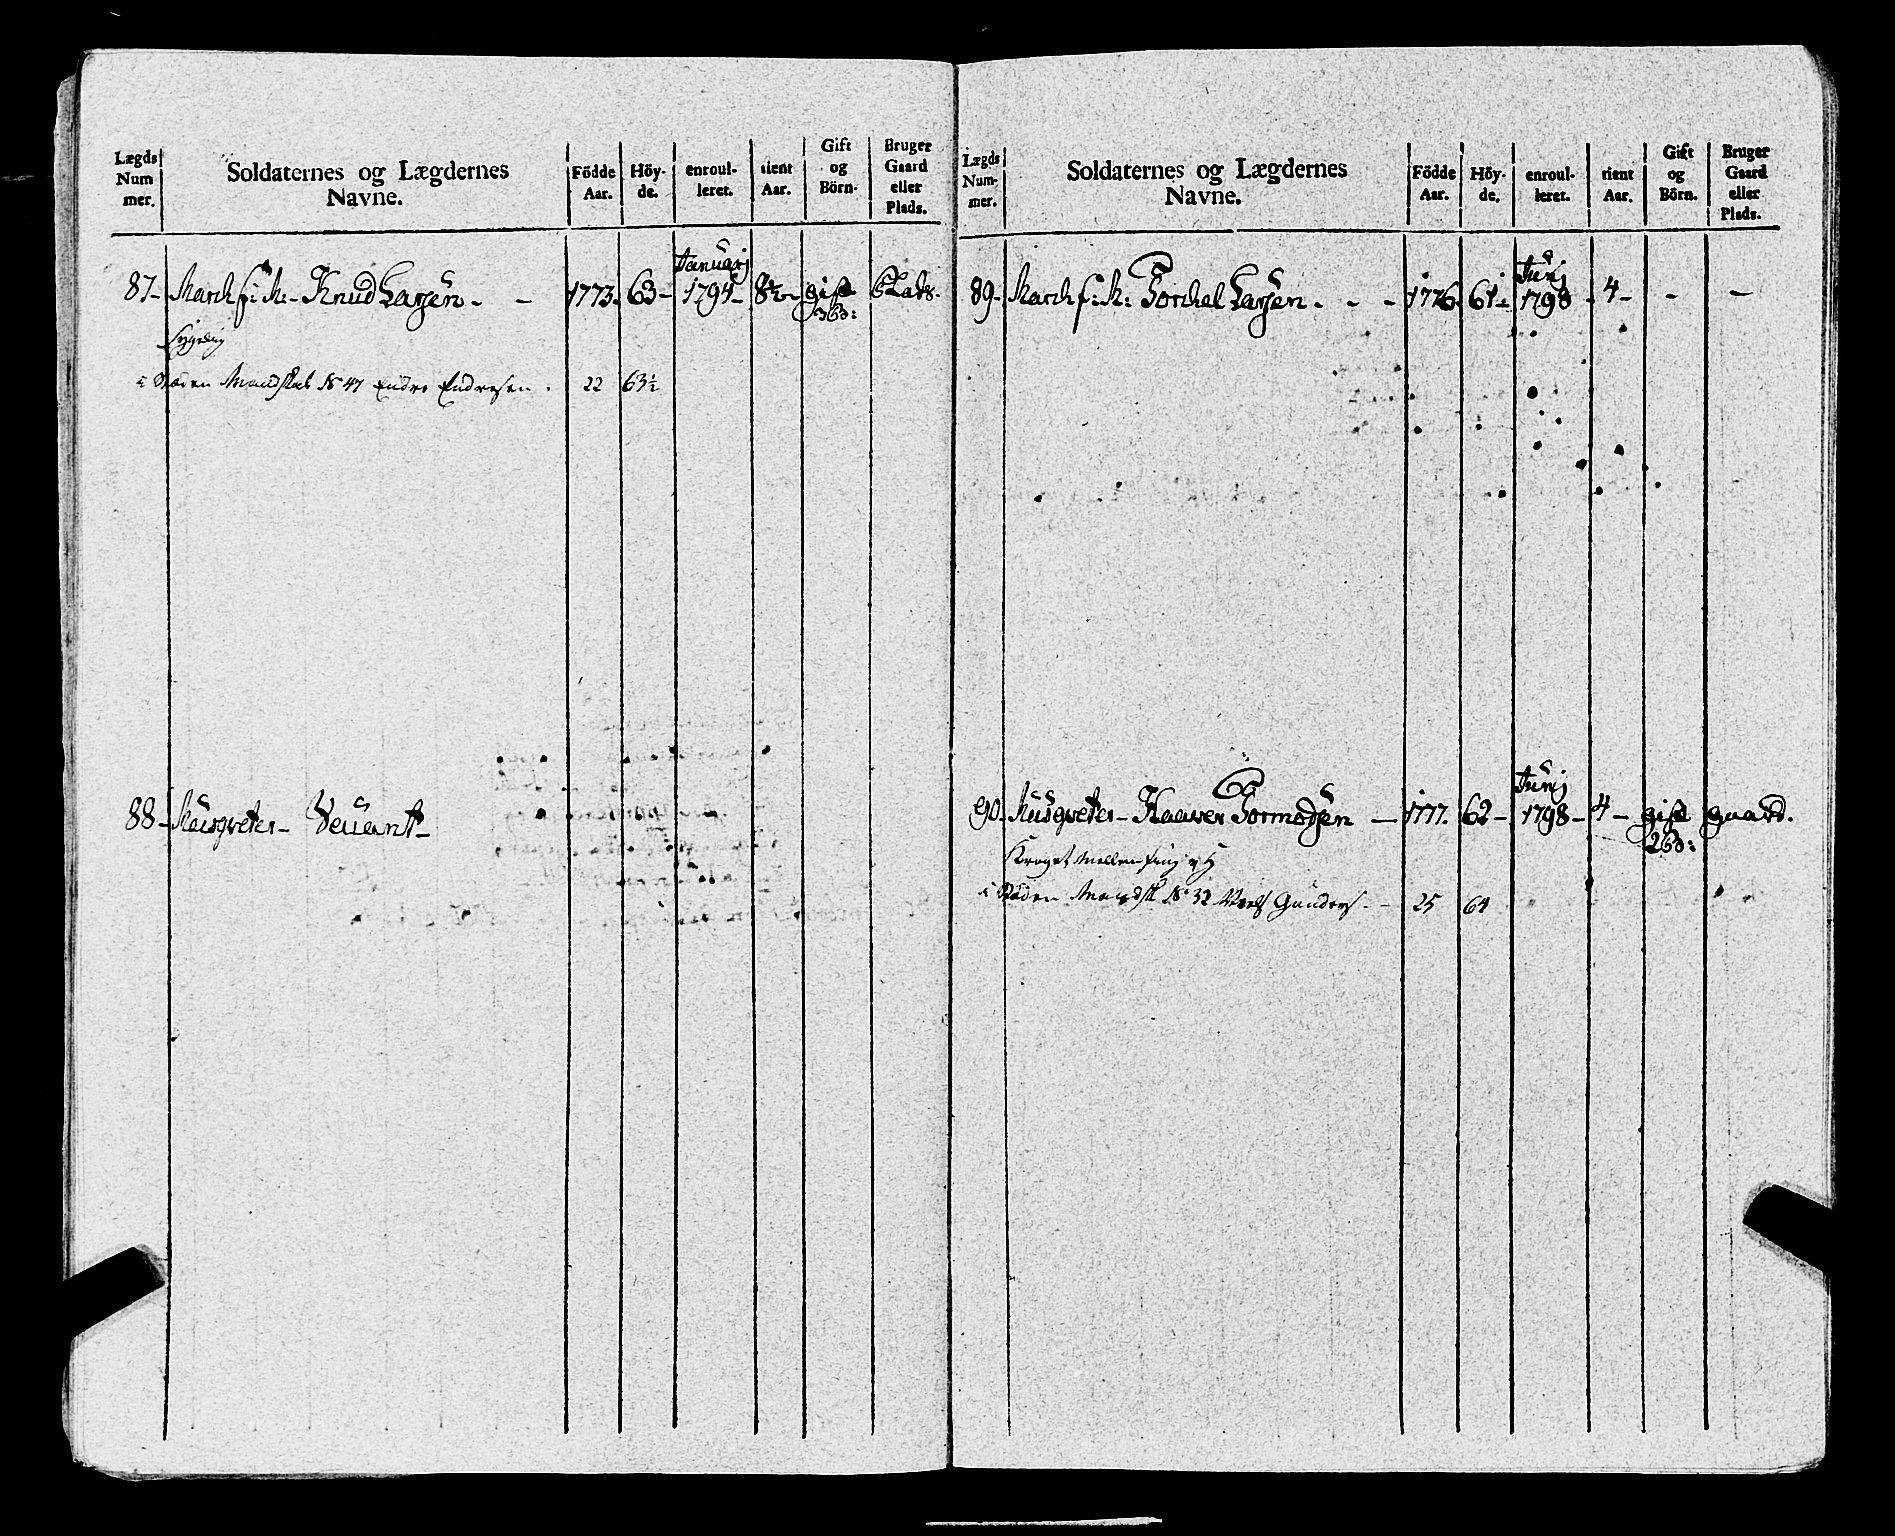 Lægds Num mer.
Soldaternes og Lægdernes Navne.
Födde Aar.
Höy- de.
enroul- leret.
tient Aar.
Gift og Börn.
Bruger Gaard eller Plads.
87- March f: K:- Knud Larsen. - 1773. 63- Januarj 1794- 8½- gift 3 b: Plads.
Sygelig
i Støden Mandskab No 47 Endre Endresen. 22 63½
88- Musqveter- Vacant-
Lægds Num- mer.
Soldaternes og Lægdernes Navne.
Födde Aar.
Höy- de.
enroul- leret.
tient Aar.
Gift og Börn.
Bruger Gaard eller Plads.
89- March f: K: Torchel Larsen. - - 1776. 61- Junj 1798 4- - -
90. Musqveter- Haaver Tormodsen - 1777. 62- Junj 1798- 4- gift 2 b: gaard.
i Støden Mandsk No 32 Gunders. - 25 64